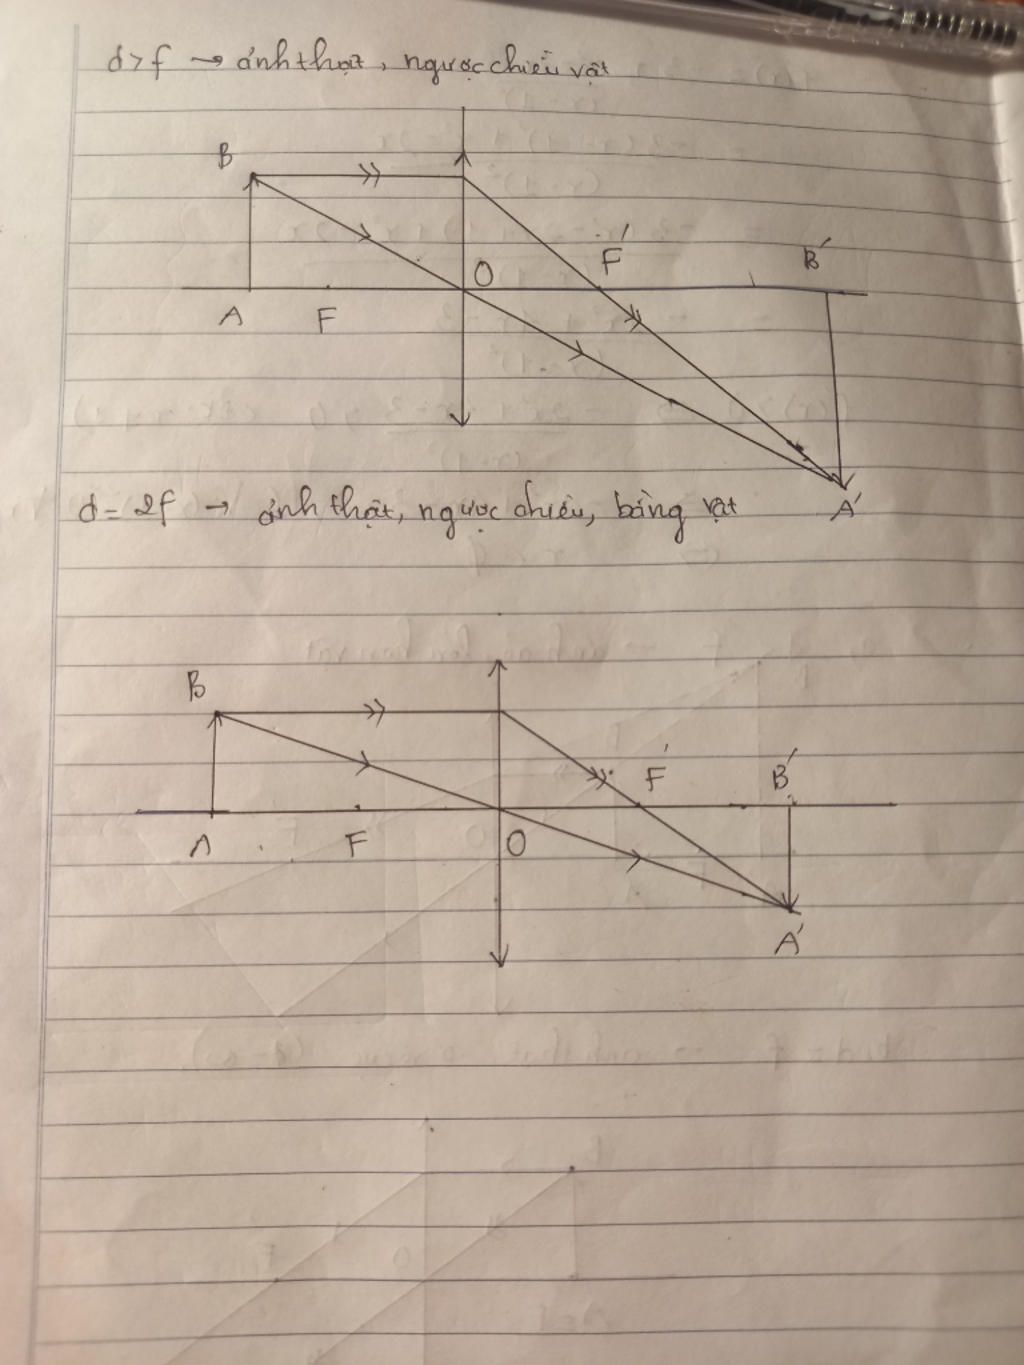 d > f → ảnh thật, ngược chiều vật
B
O F' B'
A F
A'
d = 2f → ảnh thật, ngược chiều, bằng vật
B
F' B'
A F O
A'